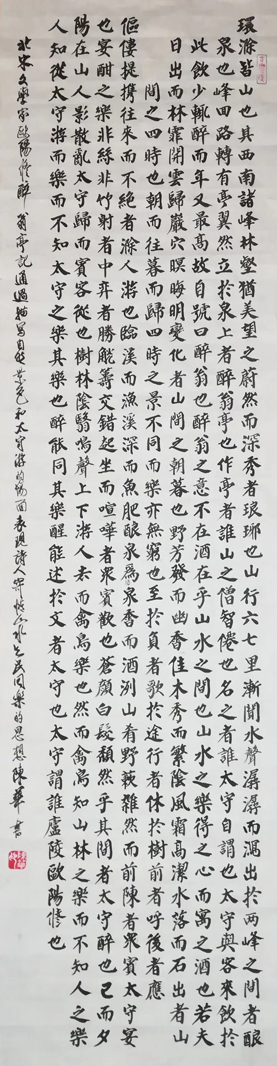 環滁皆山也其西南諸峰林壑猶美望之蔚然而深秀者琅琊也山行六七里漸聞水聲潺潺而瀉出於两峰之間者釀
泉也峰回路轉有亭翼然立於泉上者醉翁亭也作亭者誰山之僧智僊也名之者誰太守自謂也太守與客來飲於
此飲少輒醉而年又最高故自號曰醉翁也醉翁之意不在酒在乎山水之間也山水之樂得之心而寓之酒也若夫
日出而林霏開雲歸巖穴暝晦明變化者山間之朝暮也野芳發而幽香佳木秀而繁陰風霜高潔水落而石出者山
間之四時也朝而往暮而歸四時之景不同而樂亦無窮也至於負者歌於途行者休於樹前者呼後者應
傴僂提攜往來而不絕者滁人游也臨溪而漁溪深而魚肥釀泉爲泉香而酒洌山肴野蔌雜然而前陳者眾賓太守宴
也宴酣之樂非絲非竹射者中弈者勝觥籌交錯起坐而喧嘩者眾賓歡也蒼顏白髮頹然乎其間者太守醉也已而夕
陽在山人影散亂太守歸而賓客從也樹林陰翳鳴聲上下游人去而禽鳥樂也然而禽鳥知山林之樂而不知人之樂
人知從太守游而樂而不知太守之樂其樂也醉能同其樂醒能述於文者太守也太守謂誰廬陵歐陽修也
北宋文學家歐陽修醉翁亭記通過描寫自然景色和太守游的場面表現詩人寄情山水与民同樂的思想陳華書